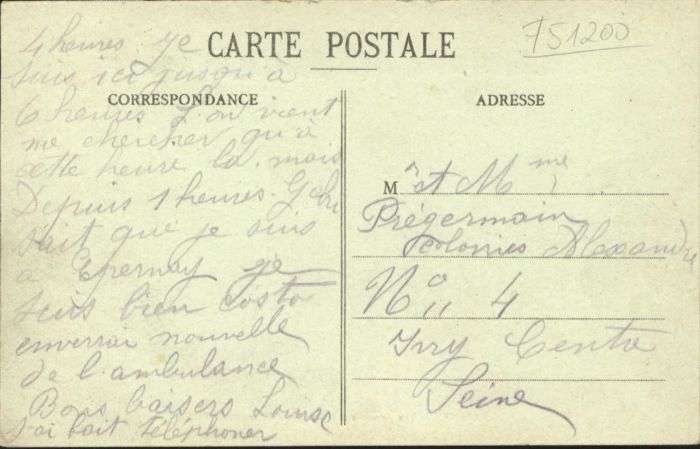 751200
CARTE POSTALE
CORRESPONDANCE
4 heures. Je
suis ici jusqu'a
6 heures L'on vient
me chercher qu'à
cette heure la. mais
Depuis 1 heures.
sait que je suis
a Epernay je
suis bien
enverrai nouvelle
de l'ambulance
Bons baisers Louise
J'ai fait téléphoner
ADRESSE
M et Mme
Prégermain
colonies Alexandre
No 4
Ivry Centre
Seine